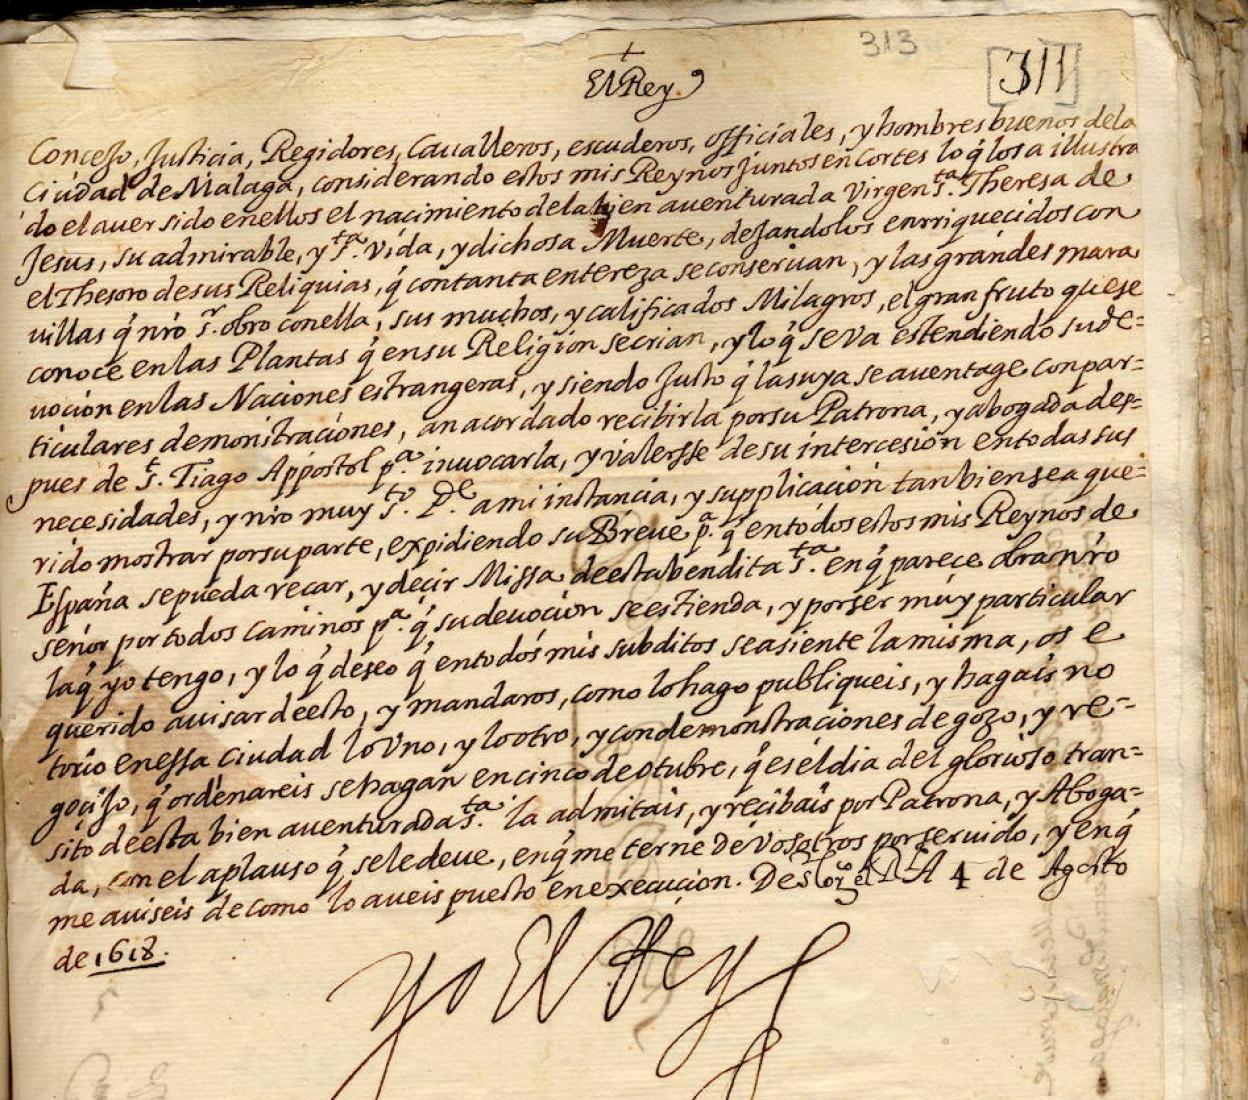 313
311
+
El Rey
Concejo, Justicia, Regidores, Caualleros, escuderos, officiales, y hombres buenos dela
Ciudad de Malaga, considerando estos mis Reynos Juntos en Cortes lo q̃ los a illustra
do el auer sido en ellos el nacimiento dela bien auenturada Virgen sta. Theresa de
Jesus, su admirable, y sta. vida, y dichosa Muerte, dejandolos enrriquecidos con
el Thesoro de sus Reliquias, q̃ con tanta entereza se conseruan, y las grandes mara
villas q̃ nr̃o sr. obro con ella, sus muchos, y calificados Milagros, el gran fruto que se
conoce en las Plantas q̃ en su Religion se crian, y lo q̃ se va estendiendo su de=
uocion en las Naciones estrangeras, y siendo Justo q̃ la suya se auentage con par=
ticulares demonstraciones, an acordado recibirla por su Patrona, y abogada des=
pues de st. Tiago Appostol pa. inuocarla, y valersse de su intercesion en todas sus
necesidades, y nr̃o muy sto. Pe. a mi instancia, y supplicacion tanbien sea que=
rido mostrar por su parte, expidiendo su Breue pa. q̃ en todos estos mis Reynos de
España se pueda reçar, y decir Missa de esta bendita sta. en q̃ parece obra nr̃o
señor por todos caminos pa. q̃ su deuocion se estienda, y por ser muy particular
la q̃ yo tengo, y lo q̃ deseo q̃ en todos mis subditos se asiente la misma, os e
querido auisar de esto, y mandaros, como lo hago publiqueis, y hagais no
torio en essa ciudad lo vno, y lo otro, y con demonstraciones de gozo, y re=
gocijo, q̃ ordenareis se hagan en cinco de otubre, q̃ es el dia del glorioso tran=
sito de esta bien auenturada sta. la admitais, y recibais por Patrona, y Aboga=
da, con el aplauso q̃ se le deue, en q̃ me terne de vosotros por seruido, y en q̃
me auiseis de como lo aueis puesto en execucion. De s Lor.º el Rl A 4 de Agosto
de 1618.
Yo El Rey